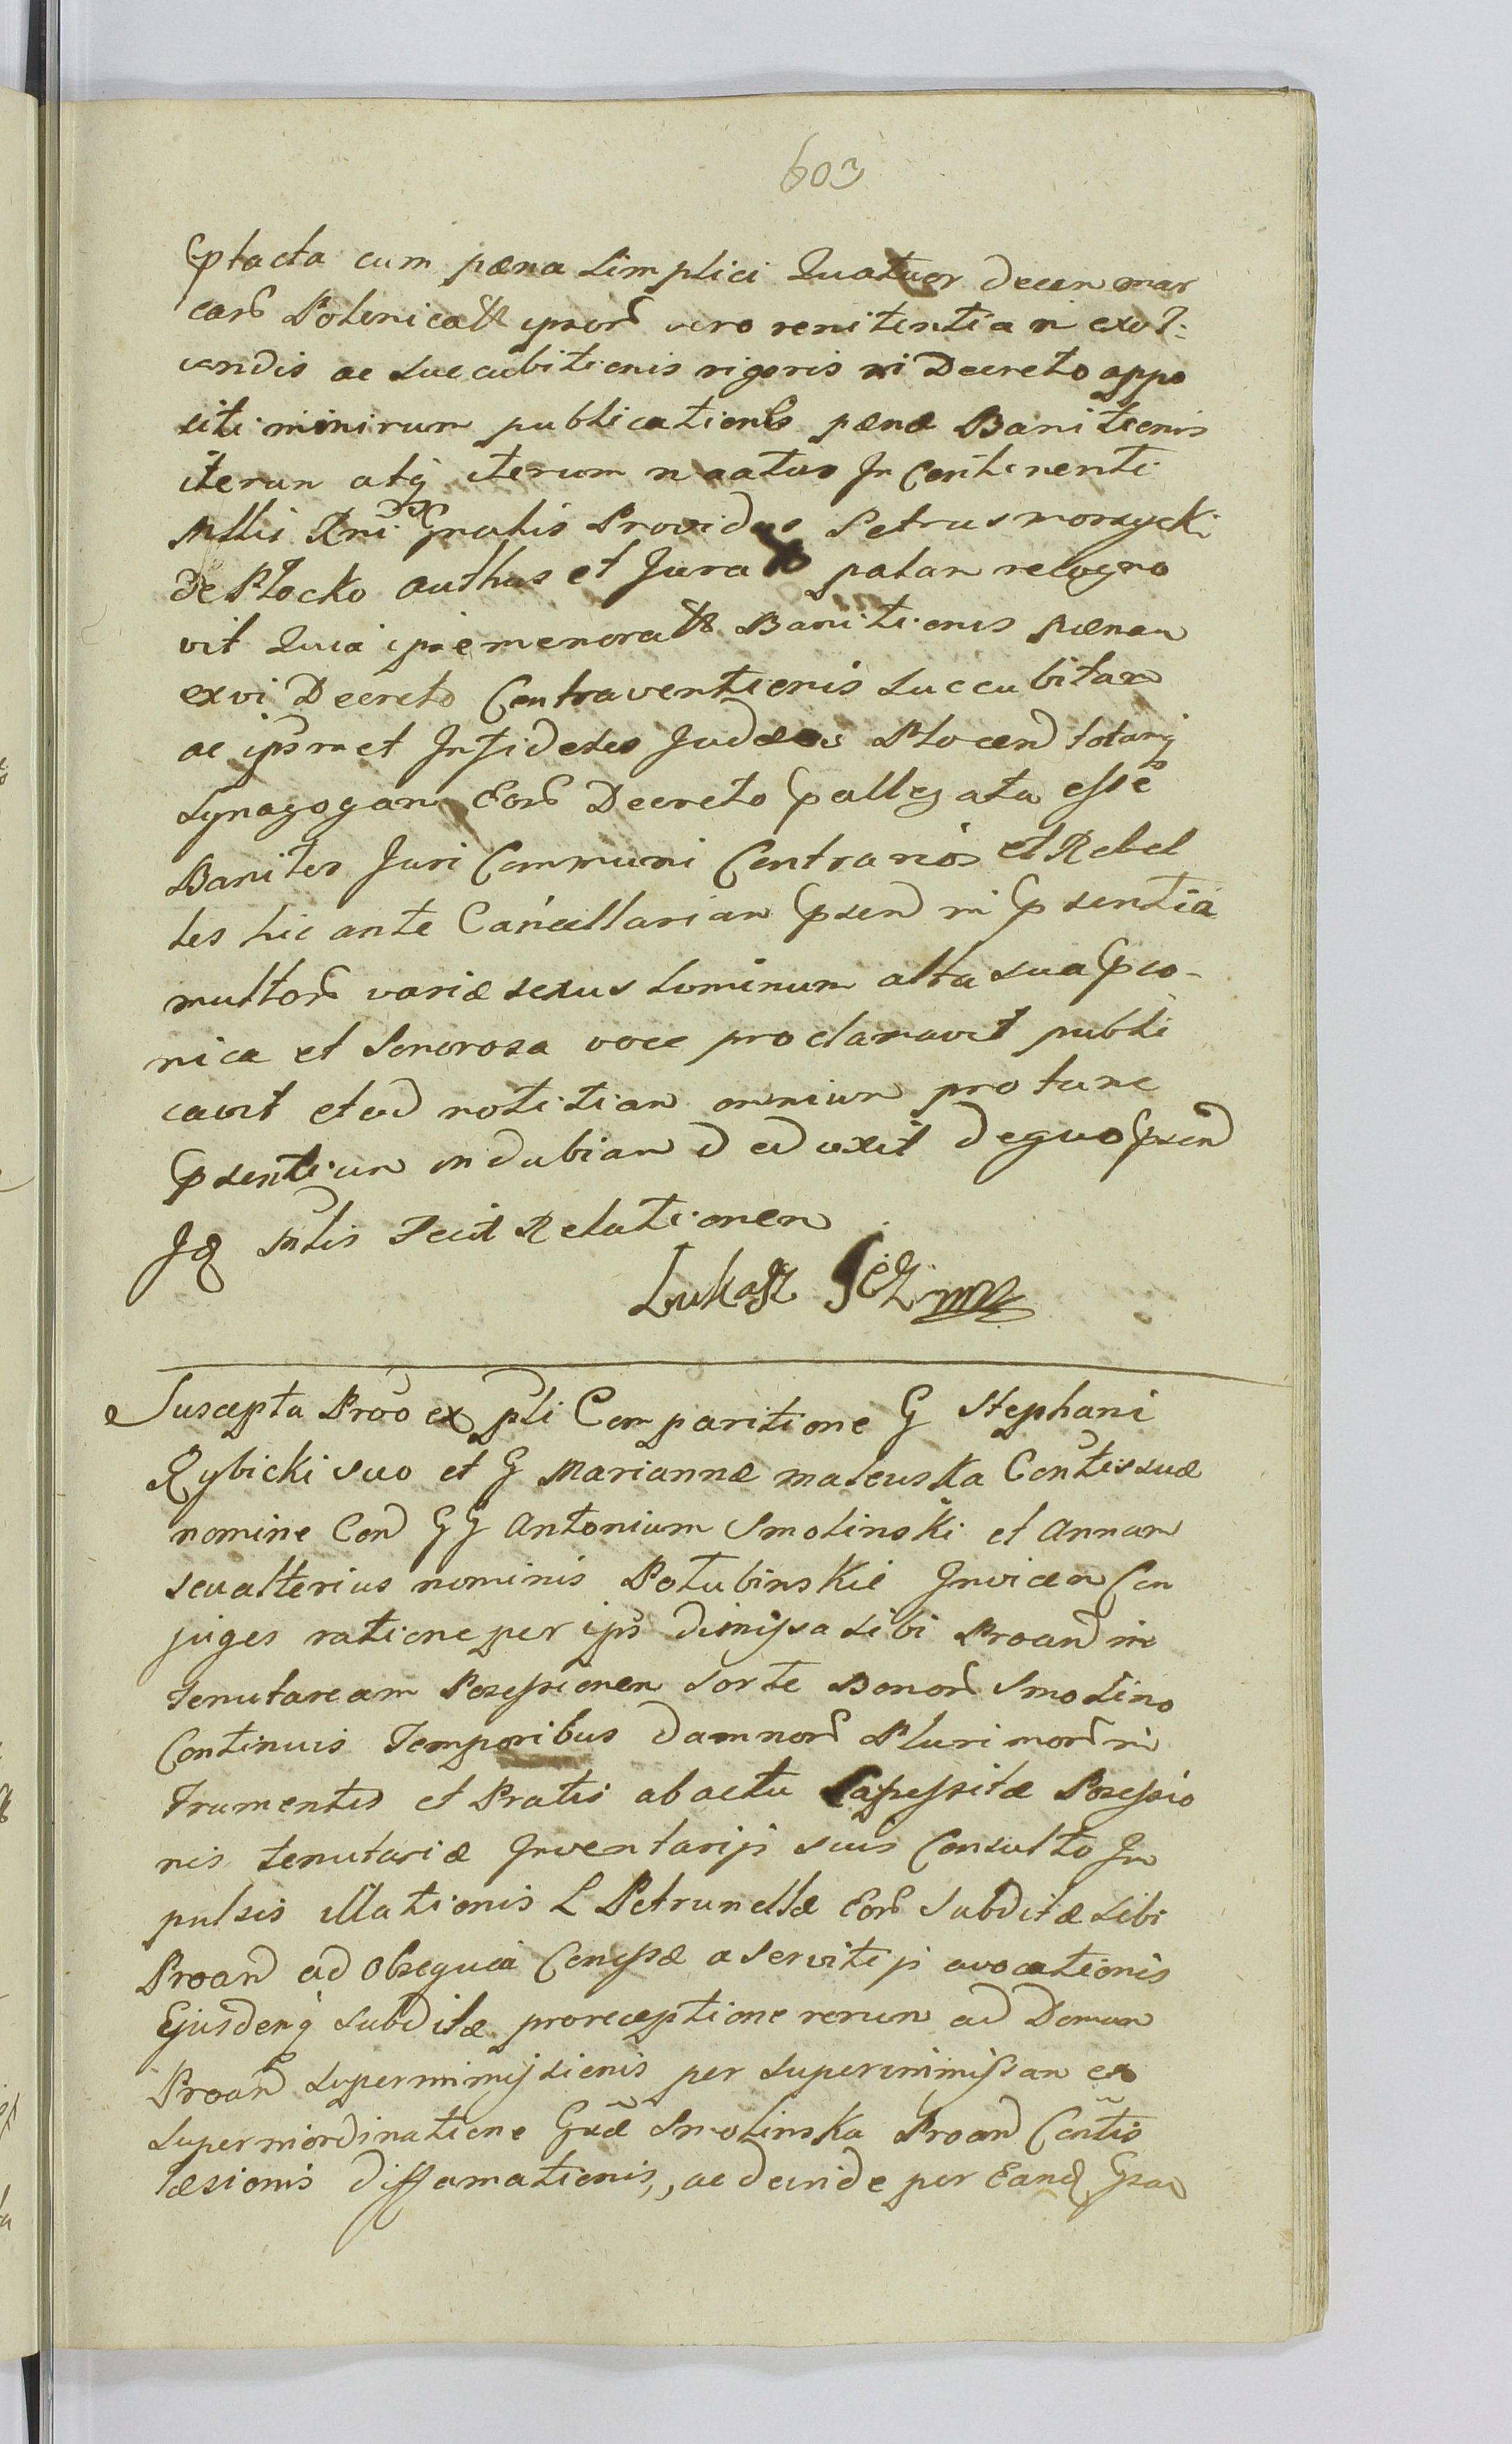 603
Eptacta cum pæna simplici Quatuor decem mar
car Polonicall ipsor vero renitentia in exol:
vendis ac succubitionis rigoris in Decreto appo
siti nimirum publicationis pænæ Banitionis
iterum atq iterum Incontinenti
Mttis Rni Gnralis Providus Petrus
de Płocko authus et Jura palam recogno
vit Quia Banitionis pænam
ex vi Decreto Contraventionis succubitam
ac ipsmet Infideles Judæos Plocen totamq
Synagogam Eor Decreto pallegata esse
Banitos Juri Communi Contrarios et Rebel
les hic ante Cancellariam psen in psentia
multor variæ sexus hominum alta sua pco-
nica et Sonorosa voce proclamavit publi
cavit et ad notitiam omnium pro tunc
psentium indubiam deduxit de quo psen
Jq sntis Fecit Relationem
Lukasz
Suscepta Prao ex pti Comparitione G Stephani
Rybicki suo et G Mariannæ Mateuska Contis suæ
nomine Con GG Antonium Smolinski et Annam
seu alterius nominis Potubinskie Invicem Con
juges ratione per ips dimissa sibi Proand in
Tenutaream Posessionem Sorte Bonor Smolino
Continuis Temporibus damnor Plurimor in
Frumentis et Pratis ab actu Capessitæ Posessio
nis tenutariæ Inventarijs suis Consulto Im
pulsis illationis L Petrunellæ Eor Subditæ sibi
Proand ad Obsequia Concessæ a servitijs avocationis
Ejusdemq subditæ pro receptione rerum ad Domum
Proand superimmissionis per superimmissam ex
superinordinatione Gsæ Smolinska Proand Contis
læsionis diffamationis, ac deinde per Eand Gsam